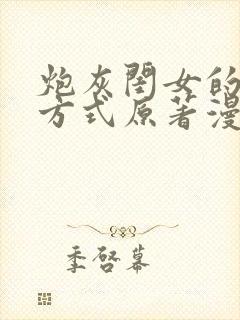 炮灰闺女的
方式原著漫
季启暮